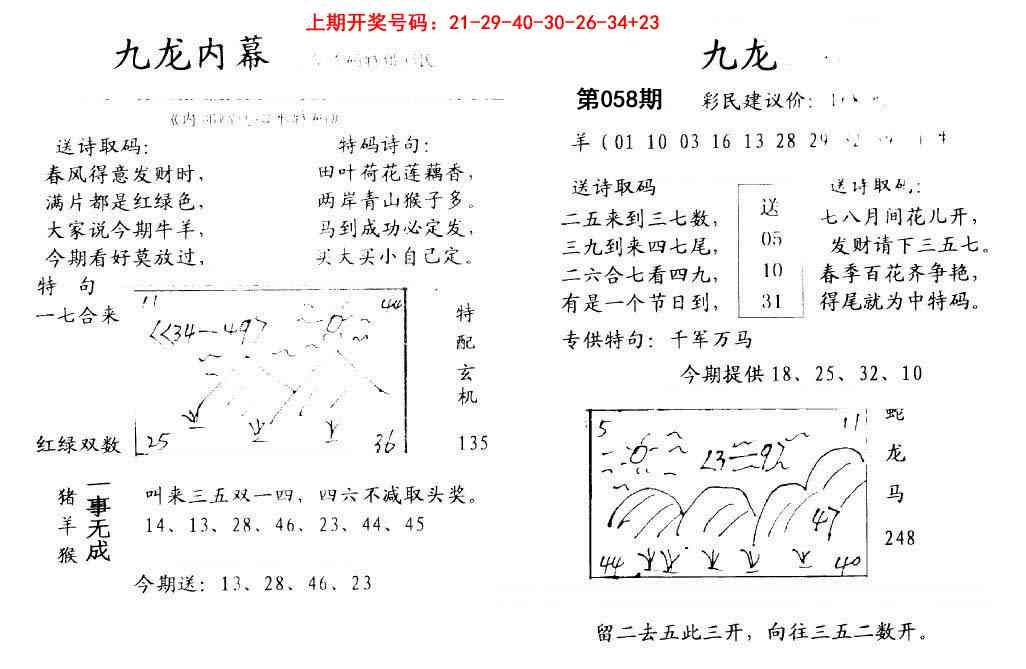 上期开奖号码：21-29-40-30-26-34+23
九龙内幕
送诗取码：
春风得意发财时，
满片都是红绿色，
大家说今期牛羊，
今期看好莫放过，
特码诗句：
田叶荷花莲藕香，
两岸青山猴子多。
马到成功必定发，
买大买小自己定。
特 句
一七合来
红绿双数
11
44
34—49
25
36
特配玄机
135
猪羊猴
一事无成
叫来三五双一四，四六不减取头奖。
14、13、28、46、23、44、45
今期送：13、28、46、23
九龙
第058期
彩民建议价：
羊（01 10 03 16 13 28 29
送诗取码
二五来到三七数，
三九到来四七尾，
二六合七看四九，
有是一个节日到，
送
05
10
31
送诗取码：
七八月间花儿开，
发财请下三五七。
春季百花齐争艳，
得尾就为中特码。
专供特句：千军万马
今期提供 18、25、32、10
5
11
47
44
40
蛇
龙
马
248
留二去五此三开，向往三五二数开。